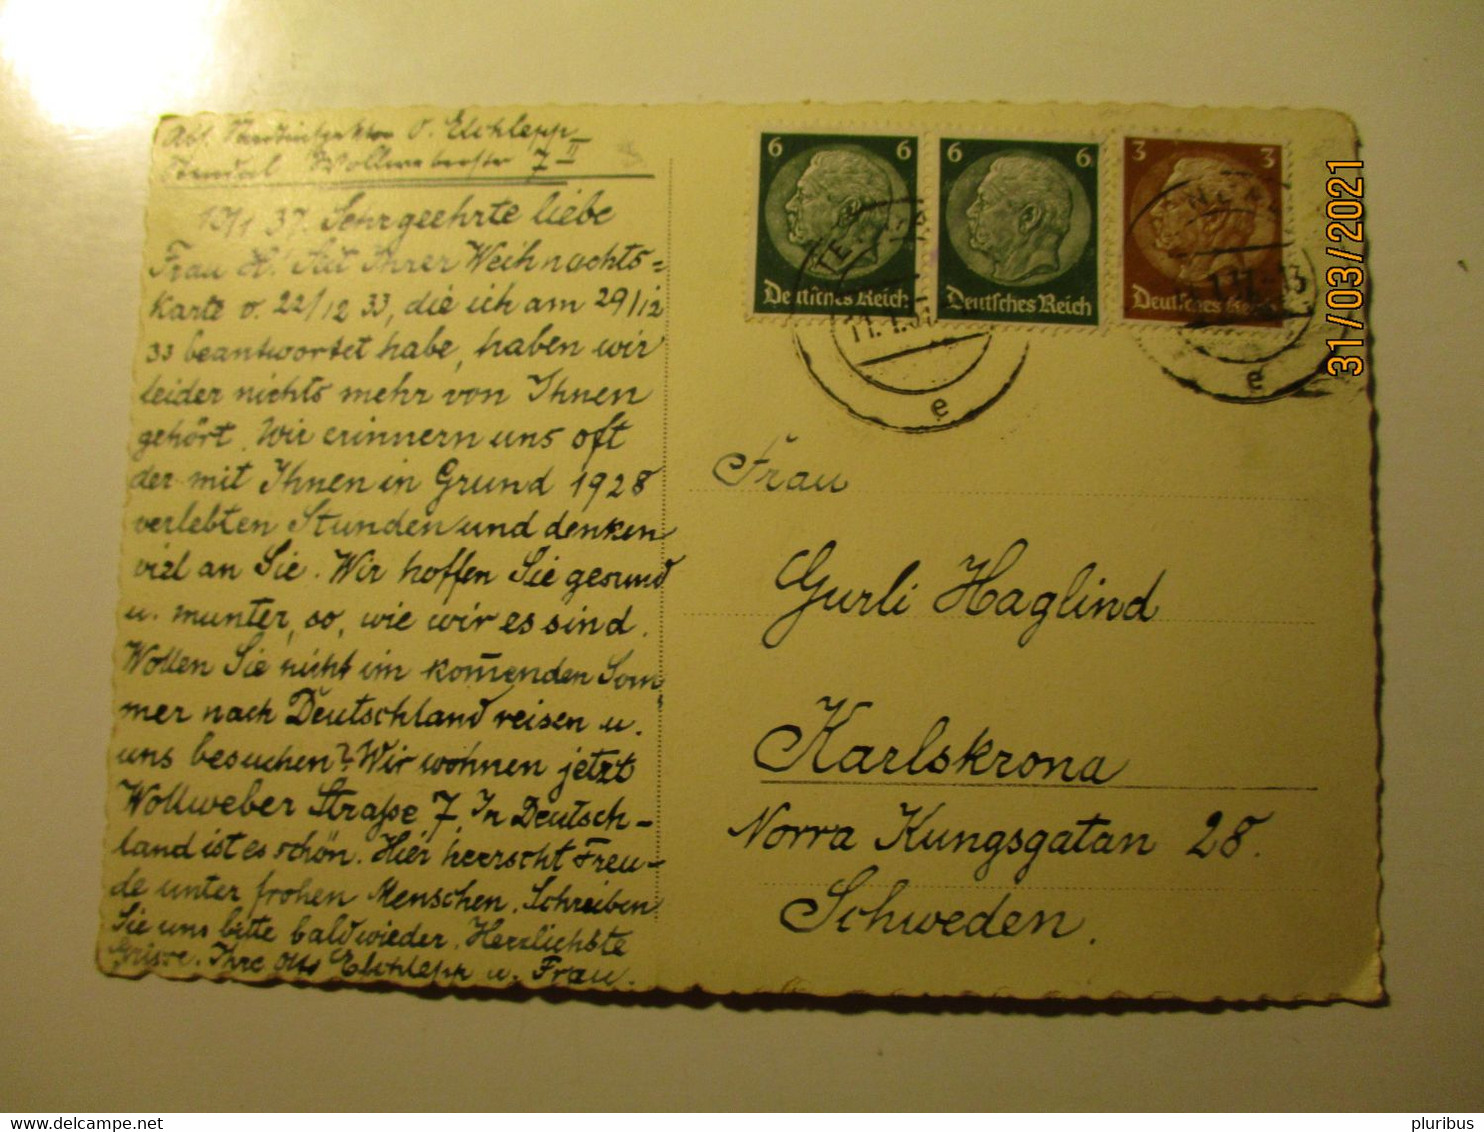 Abs. O. Elchlepp
Stendal Wollweberstr 7 II
10/1 37. Sehrgeehrte liebe
Frau H.! Seit Ihrer Weihnachts=
karte v. 22/12 33, die ich am 29/12
33 beantwortet habe, haben wir
leider nichts mehr von Ihnen
gehört. Wir erinnern uns oft
der mit Ihnen in Grund 1928
verlebten Stunden und denken
viel an Sie. Wir hoffen Sie gesund
u. munter, so, wie wir es sind.
Wollen Sie nicht im kom̄enden Som
mer nach Deutschland reisen u.
uns besuchen? Wir wohnen jetzt
Wollweber Straße 7. In Deutsch-
land ist es schön. Hier herrscht Freu-
de unter frohen Menschen. Schreiben
Sie uns bitte bald wieder. Herzlichste
Grüsse. Ihre Otto Elchlepp u. Frau.
6 6
Deutsches Reich
6 6
Deutsches Reich
3 3
Deutsches Reich
11.1.37
e
1.37-13
e
Frau
Gurli Haglind
Karlskrona
Norra Kungsgatan 28.
Schweden.
31/03/2021
pluribus